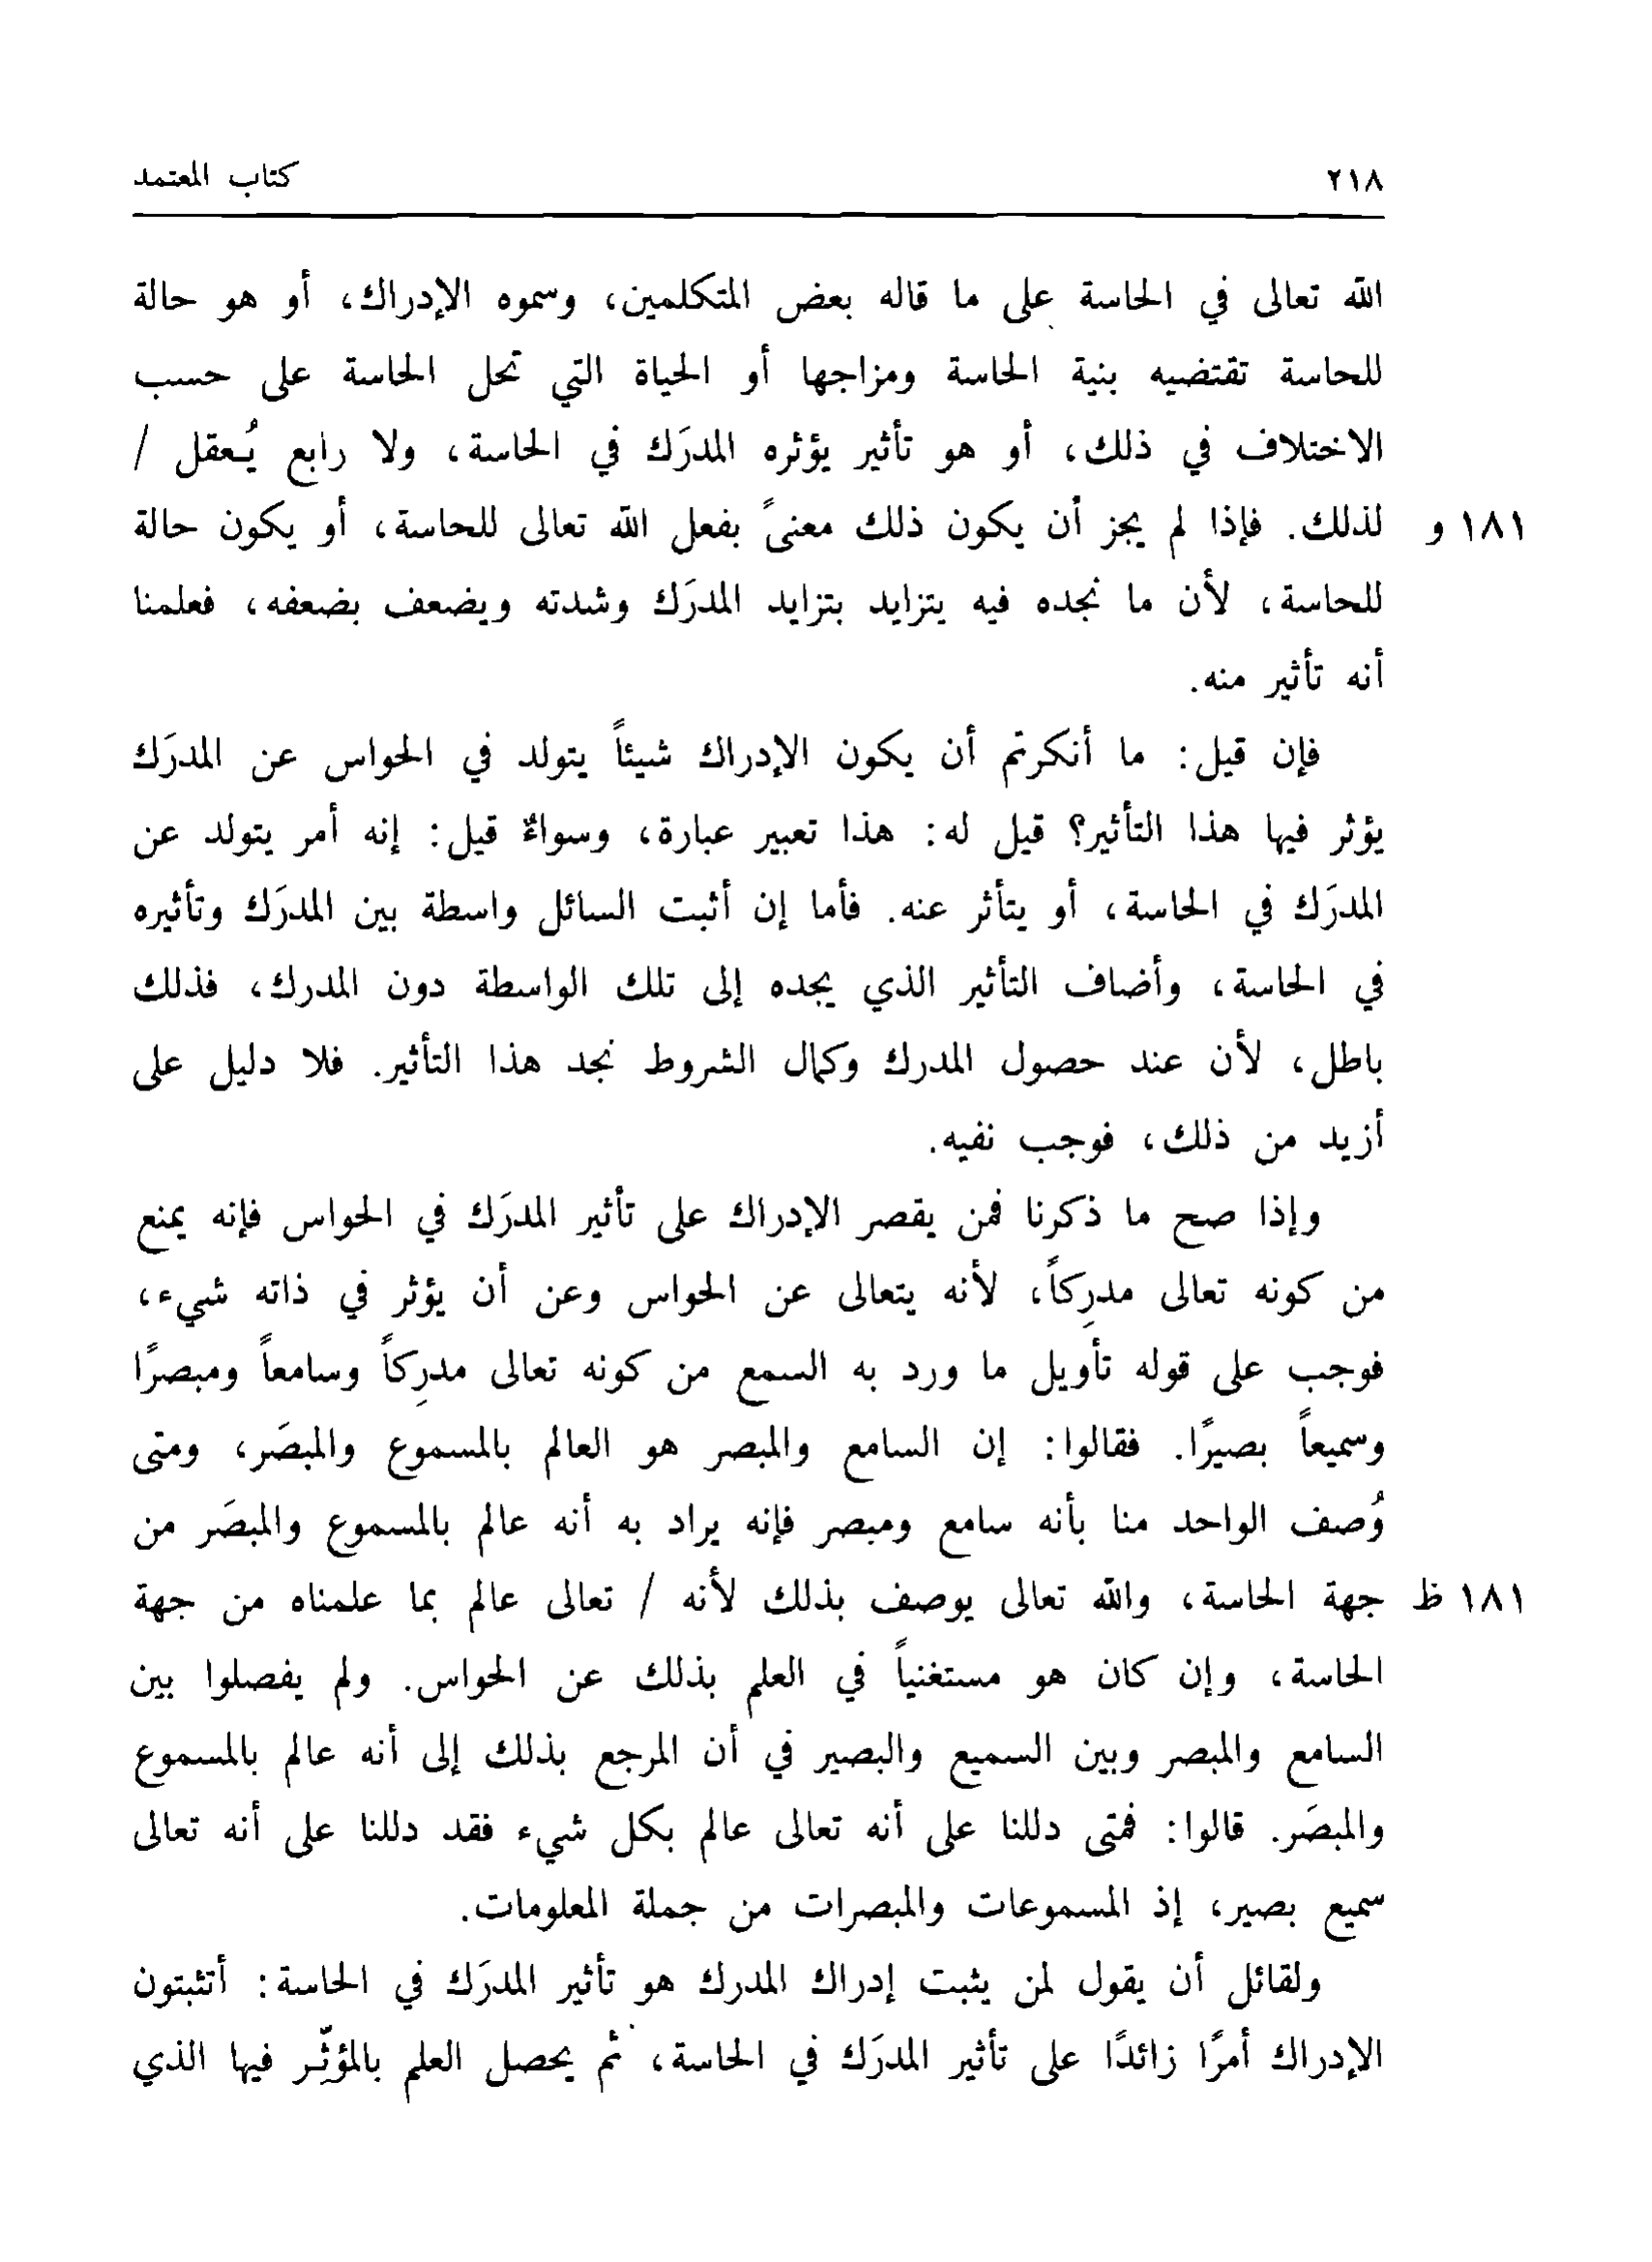 ٢١٨ كتاب المعتمد
الله تعالى في الحاسة على ما قاله بعض المتكلمين، وسموه الإدراك، أو هو حالة
للحاسة تقتضيه بنية الحاسة ومزاجها أو الحياة التي تحل الحاسة على حسب
الاختلاف في ذلك، أو هو تأثير يؤثره المدرَك في الحاسة، ولا رابع يُعقل /
١٨١ و لذلك. فإذا لم يجز أن يكون ذلك معنىً بفعل الله تعالى للحاسة، أو يكون حالة
للحاسة، لأن ما نجده فيه يتزايد بتزايد المدرَك وشدته ويضعف بضعفه، فعلمنا
أنه تأثير منه.
فإن قيل: ما أنكرتم أن يكون الإدراك شيئاً يتولد في الحواس عن المدرَك
يؤثر فيها هذا التأثير؟ قيل له: هذا تعبير عبارة، وسواءٌ قيل: إنه أمر يتولد عن
المدرَك في الحاسة، أو يتأثر عنه. فأما إن أثبت السائل واسطة بين المدرَك وتأثيره
في الحاسة، وأضاف التأثير الذي يجده إلى تلك الواسطة دون المدرك، فذلك
باطل، لأن عند حصول المدرك وكمال الشروط نجد هذا التأثير. فلا دليل على
أزيد من ذلك، فوجب نفيه.
وإذا صح ما ذكرنا فمن يقصر الإدراك على تأثير المدرَك في الحواس فإنه يمنع
من كونه تعالى مدرِكاً، لأنه يتعالى عن الحواس وعن أن يؤثر في ذاته شيء،
فوجب على قوله تأويل ما ورد به السمع من كونه تعالى مدرِكاً وسامعاً ومبصرًا
وسميعاً بصيرًا. فقالوا: إن السامع والمبصر هو العالم بالمسموع والمبصَر، ومتى
وُصف الواحد منا بأنه سامع ومبصر فإنه يراد به أنه عالم بالمسموع والمبصَر من
١٨١ ظ جهة الحاسة، والله تعالى يوصف بذلك لأنه / تعالى عالم بما علمناه من جهة
الحاسة، وإن كان هو مستغنياً في العلم بذلك عن الحواس. ولم يفصلوا بين
السامع والمبصر وبين السميع والبصير في أن المرجع بذلك إلى أنه عالم بالمسموع
والمبصَر. قالوا: فمتى دللنا على أنه تعالى عالم بكل شيء فقد دللنا على أنه تعالى
سميع بصير، إذ المسموعات والمبصرات من جملة المعلومات.
ولقائل أن يقول لمن يثبت إدراك المدرك هو تأثير المدرَك في الحاسة: أتثبتون
الإدراك أمرًا زائدًا على تأثير المدرَك في الحاسة، ثم يحصل العلم بالمؤثِّر فيها الذي